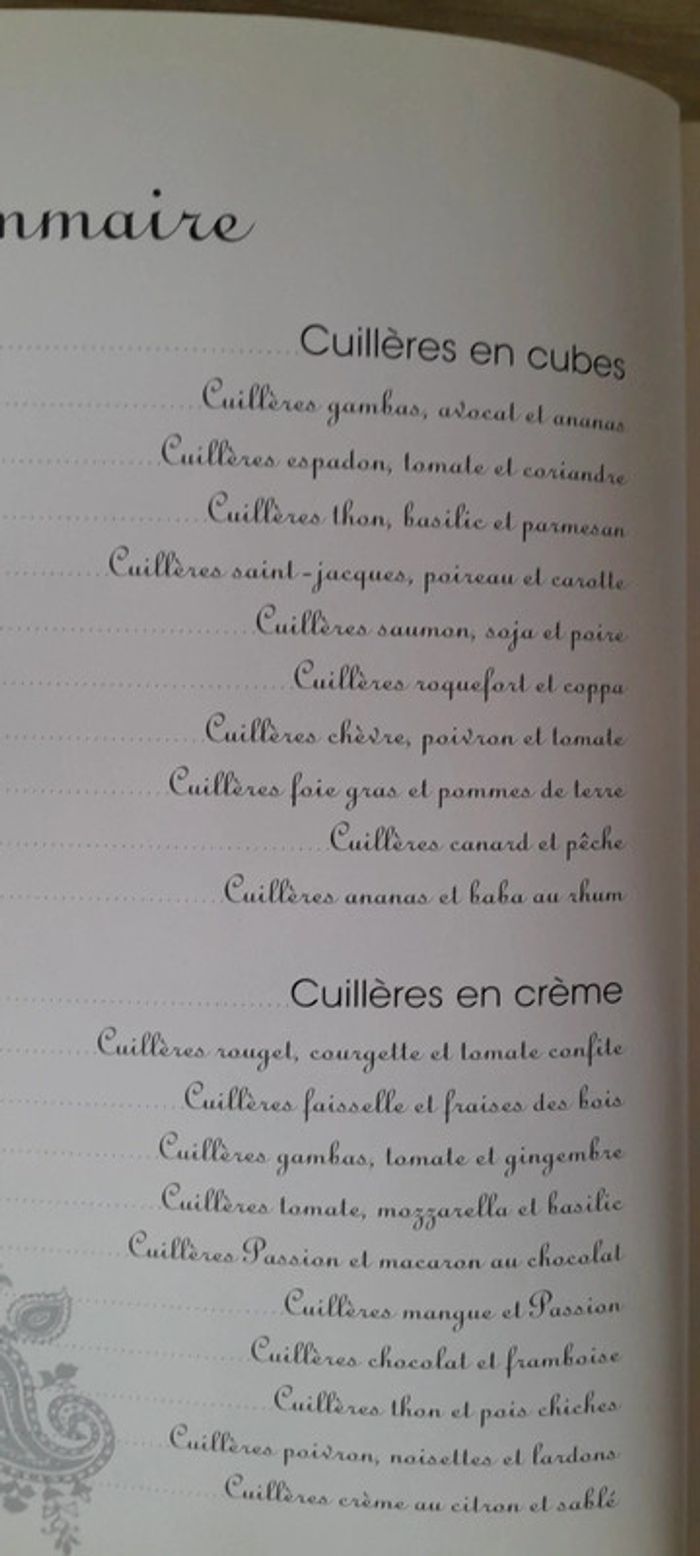 mmaire
Cuillères en cubes
Cuillères gambas, avocat et ananas
Cuillères espadon, tomate et coriandre
Cuillères thon, basilic et parmesan
Cuillères saint-jacques, poireau et carotte
Cuillères saumon, soja et poire
Cuillères roquefort et coppa
Cuillères chèvre, poivron et tomate
Cuillères foie gras et pommes de terre
Cuillères canard et pêche
Cuillères ananas et baba au rhum
Cuillères en crème
Cuillères rouget, courgette et tomate confite
Cuillères faisselle et fraises des bois
Cuillères gambas, tomate et gingembre
Cuillères tomate, mozzarella et basilic
Cuillères Passion et macaron au chocolat
Cuillères mangue et Passion
Cuillères chocolat et framboise
Cuillères thon et pois chiches
Cuillères poivron, noisettes et lardons
Cuillères crème au citron et sablé